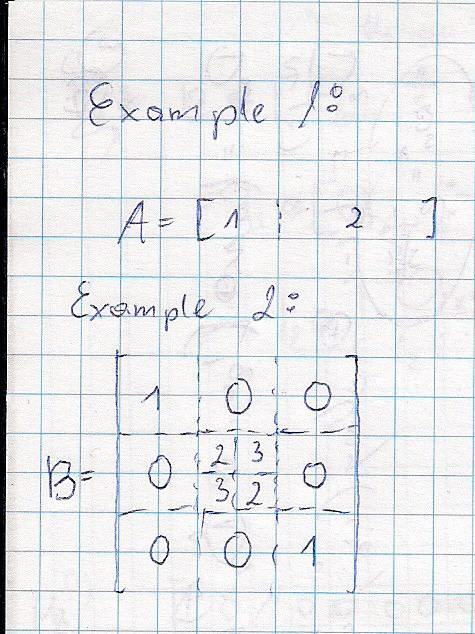 Example 1:
A = [ 1 ¦ 2 ]
Example 2:
1 0 0
2 3
B= 0 0
3 2
0 0 1